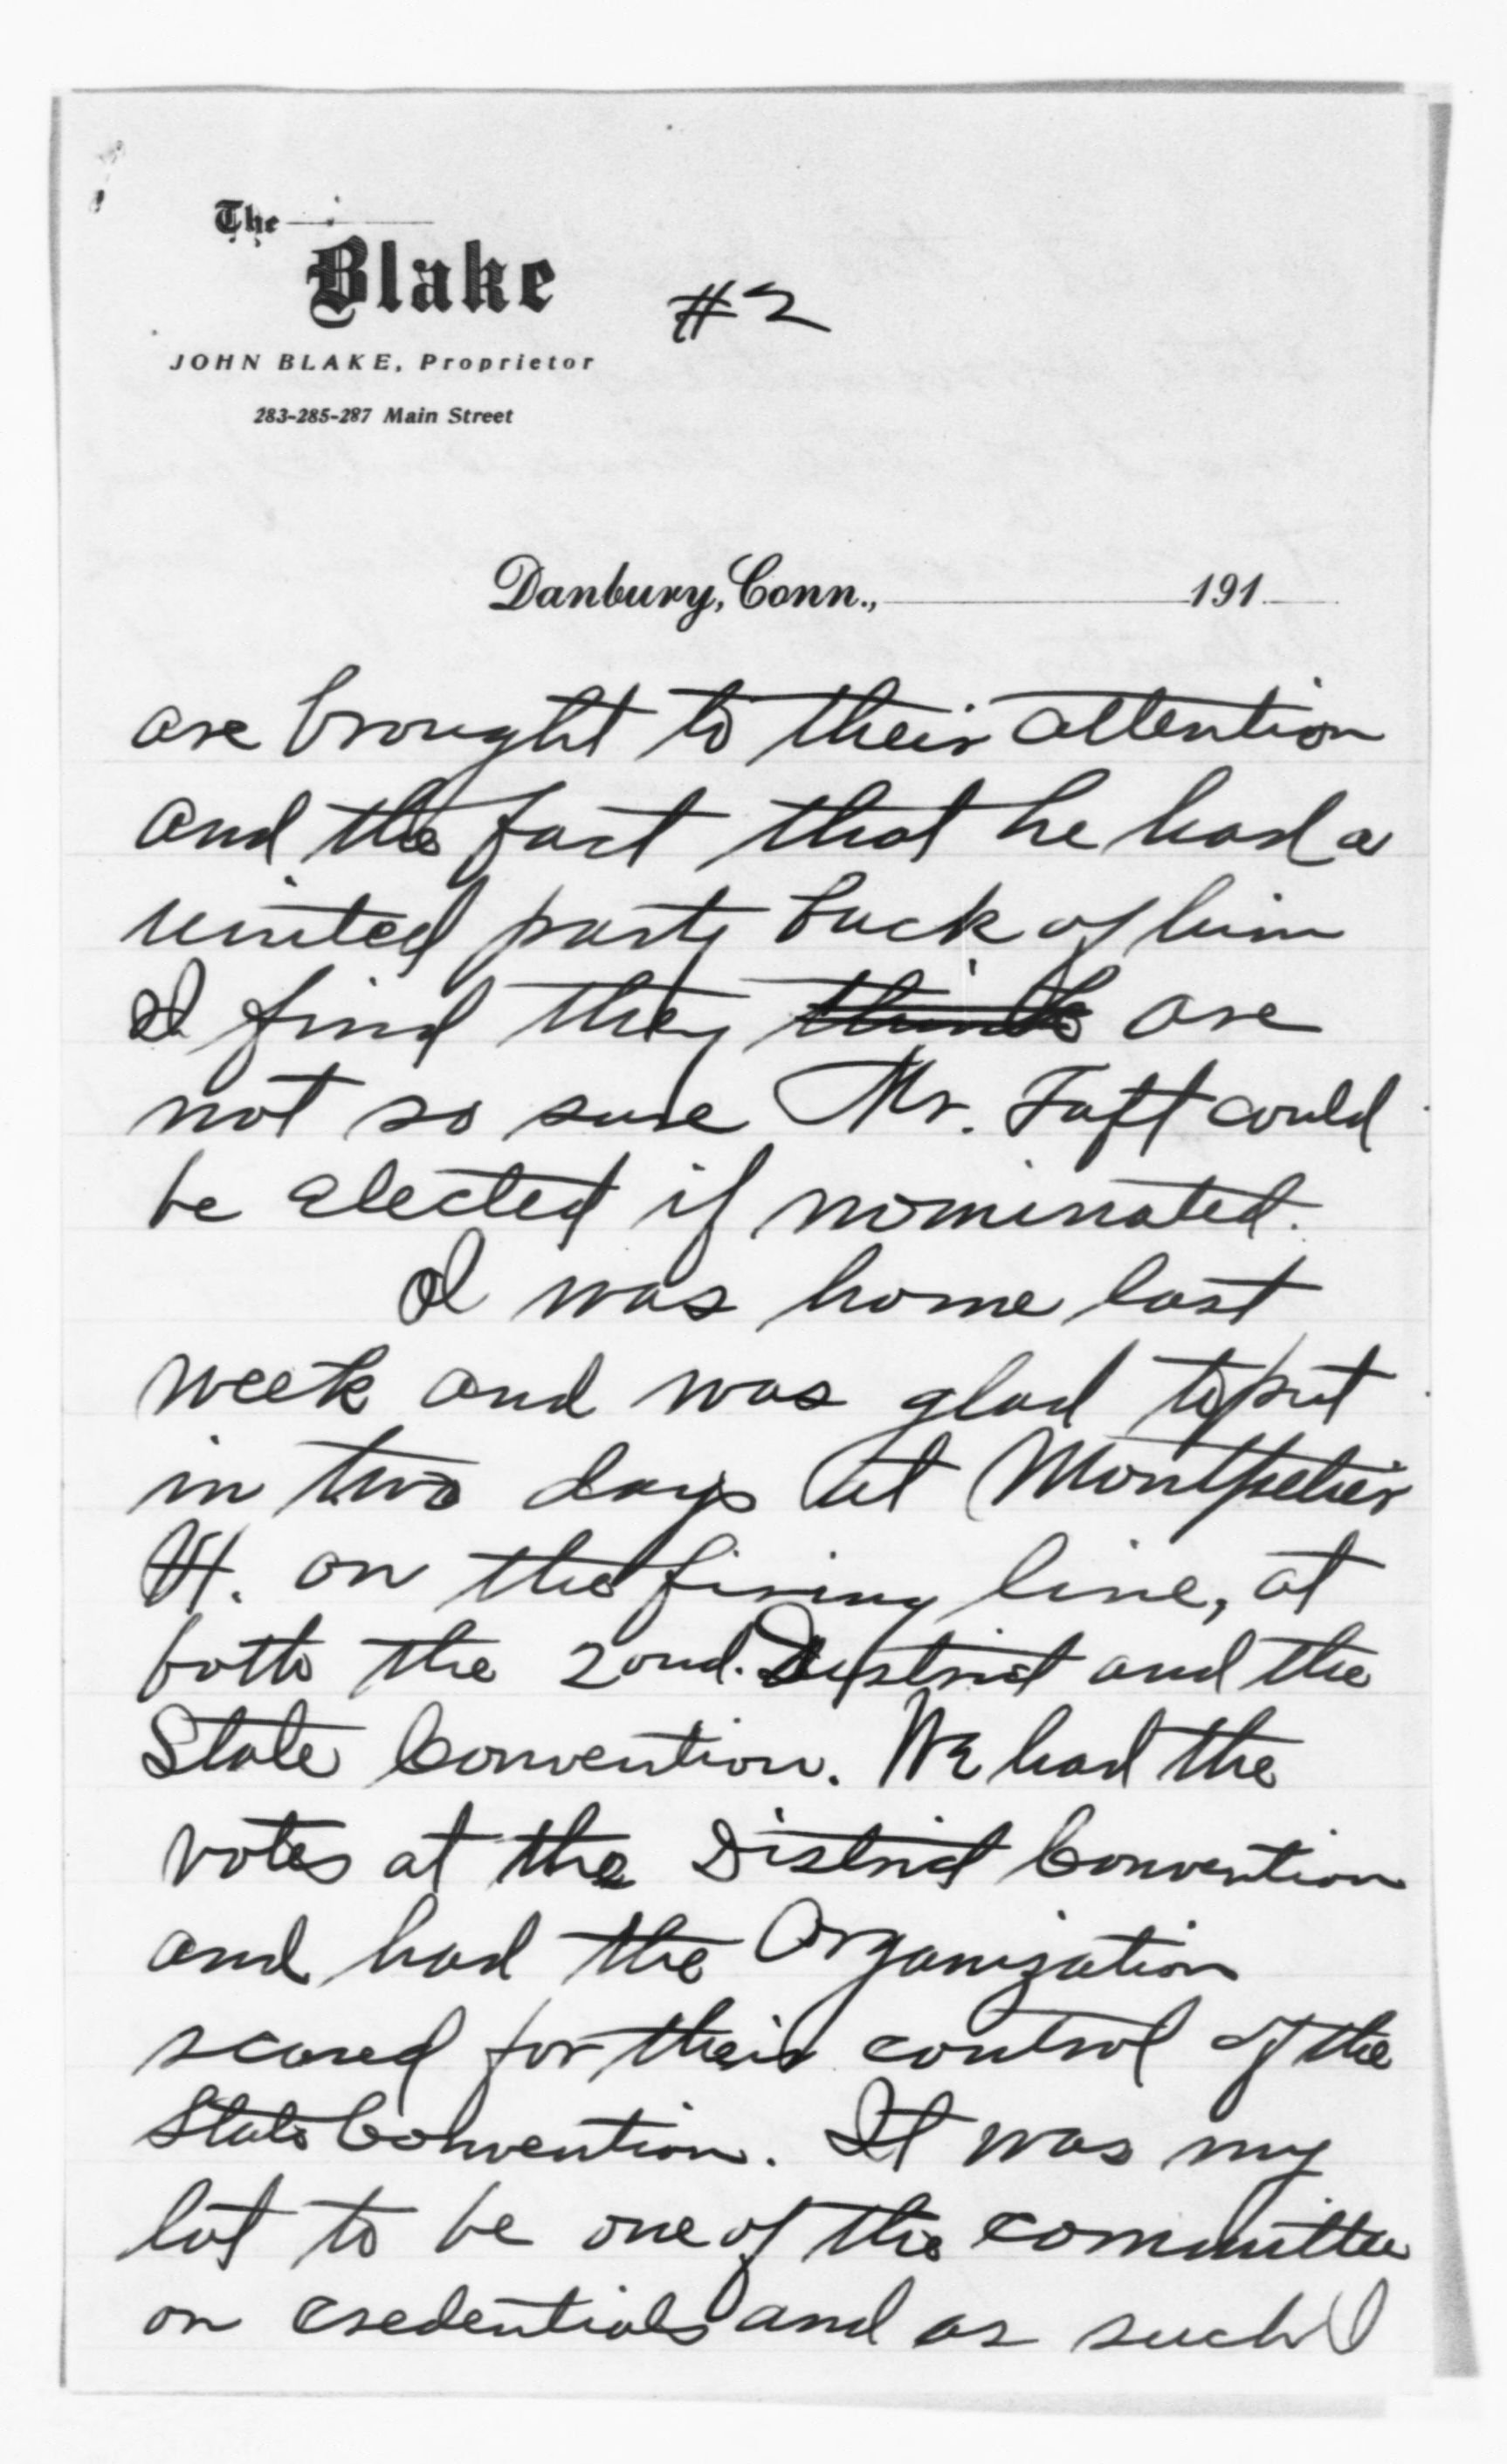 The
Blake
#2
JOHN BLAKE, Proprietor
283-285-287 Main Street
Danbury, Conn., 191
are brought to their attention
and the fact that he had a
united party back of him
I find they think are
not so sure Mr. Taft could
be elected if nominated.
I was home last
week and was glad to put
in two days at Montpelier
Vt. on the firing line, at
both the 2ond. District and the
State Convention. We had the
votes at the District Convention
and had the Organization
scared for their control of the
State Convention. It was my
lot to be one of the committee
on credentials and as such I